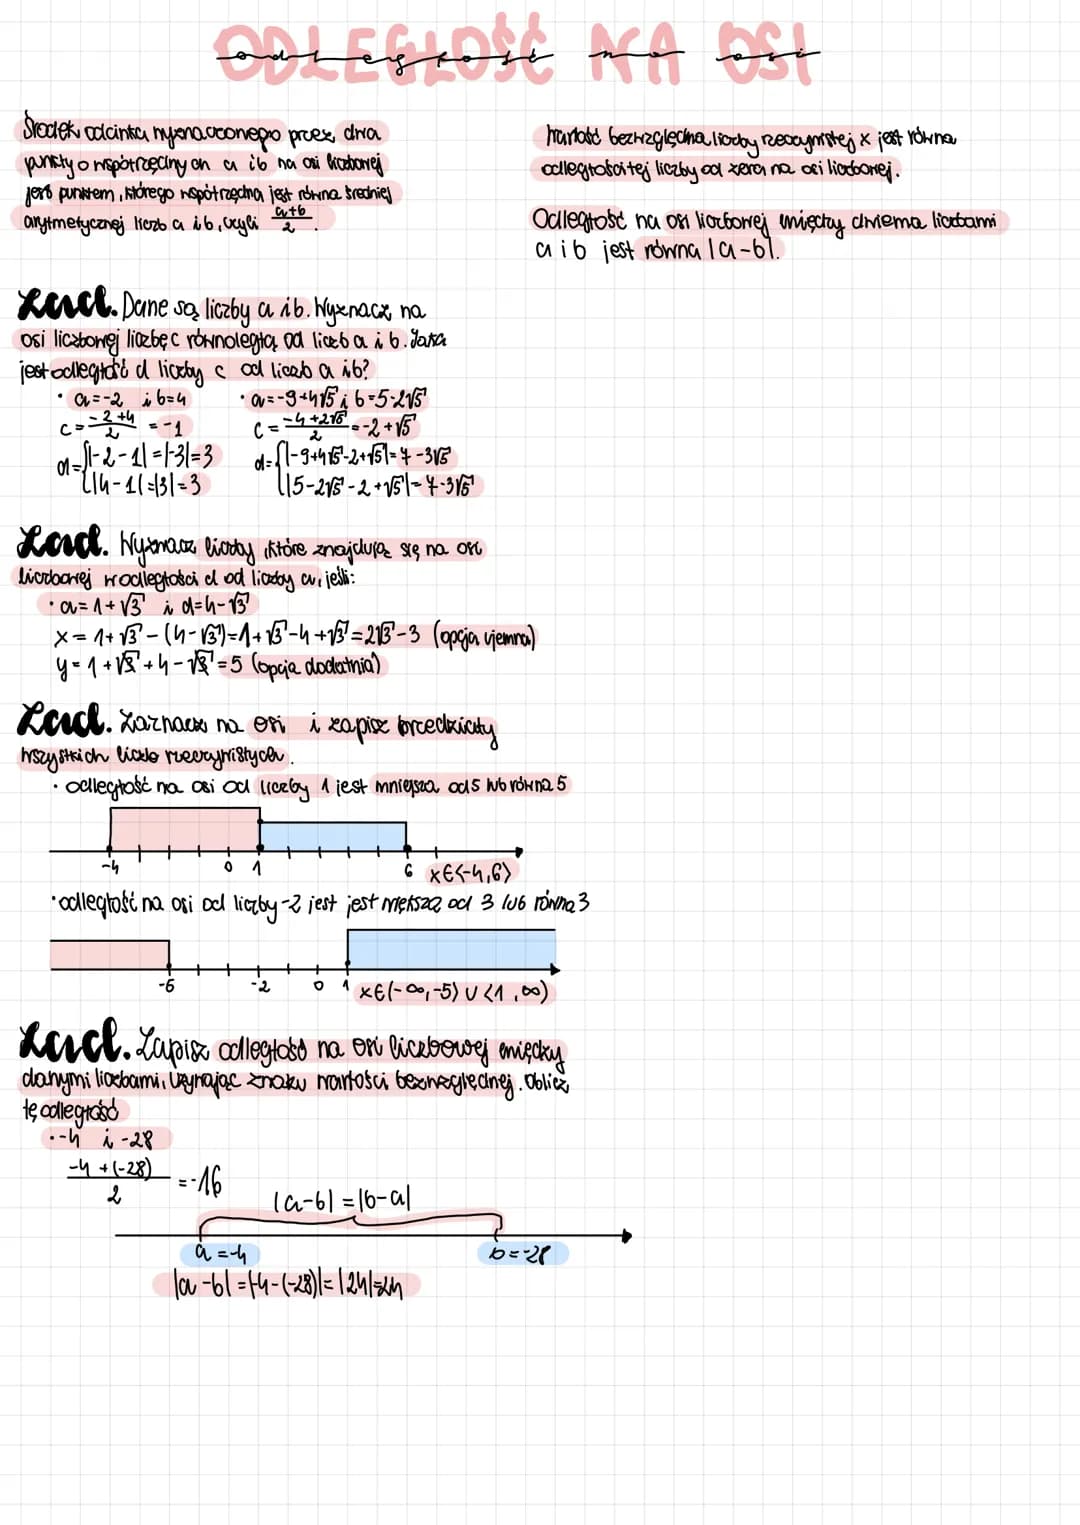 ODLEGŁOŚĆ NA OSI
odległość na osi
Środek odcinka wyznaczonego przez dwa
punkty o współrzędnych a i b na osi liczbowej
jest punktem, którego współrzędna jest równa średniej
arytmetycznej liczb a i b, czyli a+b/2.
Wartość bezwzględna liczby rzeczywistej x jest równa
odległości tej liczby od zera na osi liczbowej.
Odległość na osi liczbowej między dwiema liczbami
a i b jest równa |a-b|.
Zad. Dane są liczby a i b. Wyznacz na
osi liczbowej liczbę c równoległą od liczb a i b. Jaka
jest odległość d liczby c od liczb a i b?
· a=-2 i b=4
c=-2+4/2 =-1
d={|-2-1|=|-3|=3
{|4-1|=|3|=3
· a=-9+4√5 i b=5-2√5
c=-4+2√5/2=-2+√5
d={|-9+4√5-2+√5|=7-3√5
{|5-2√5-2+√5|=7-3√5
Zad. Wyznacz liczby, które znajdują się na osi
liczbowej w odległości d od liczby a, jeśli:
· a=1+√3 i d=4-√3
x=1+√3-(4-√3)=1+√3-4+√3=2√3-3 (opcja ujemna)
y=1+√3+4-√3=5 (opcja dodatnia)
Zad. Zaznacz na osi i zapisz przedziały
wszystkich liczb rzeczywistych.
· odległość na osi od liczby 1 jest mniejsza od 5 lub równa 5
-4 0 1 6 x∈<-4,6>
· odległość na osi od liczby -2 jest jest większa od 3 lub równa 3
-6 -2 0 1 x∈(-∞,-5> ∪ <1,∞)
Zad. Zapisz odległość na osi liczbowej między
danymi liczbami, używając znaku wartości bezwzględnej. Oblicz
tę odległość
· -4 i -28
-4+(-28)/2 =-16
|a-b|=|b-a|
a=-4 b=-28
|a-b|=|-4-(-28)|=|24|=24